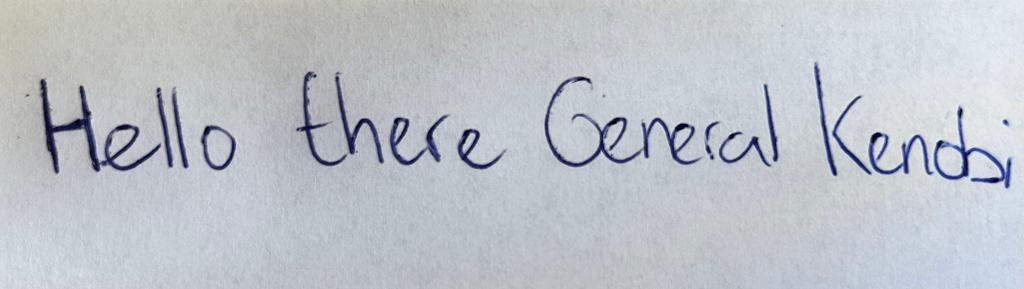 Hello there General Kenobi